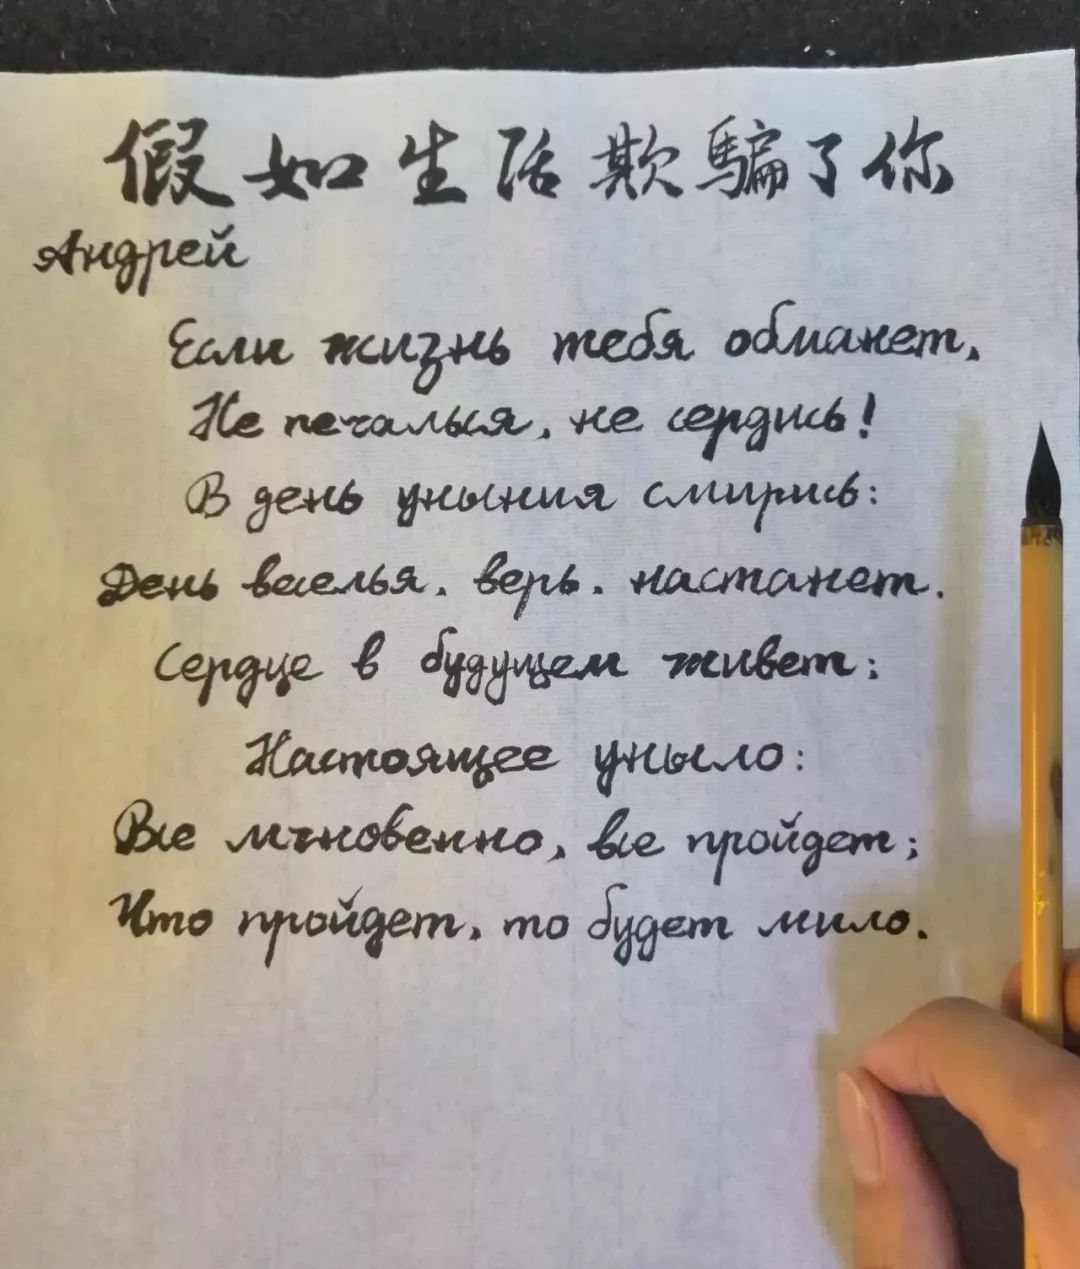 假如生活欺骗了你
Андрей
Если жизнь тебя обманет,
Не печалься, не сердись!
В день уныния смирись:
День веселья, верь, настанет.
Сердце в будущем живет;
Настоящее уныло:
Все мгновенно, все пройдет;
Что пройдет, то будет мило.